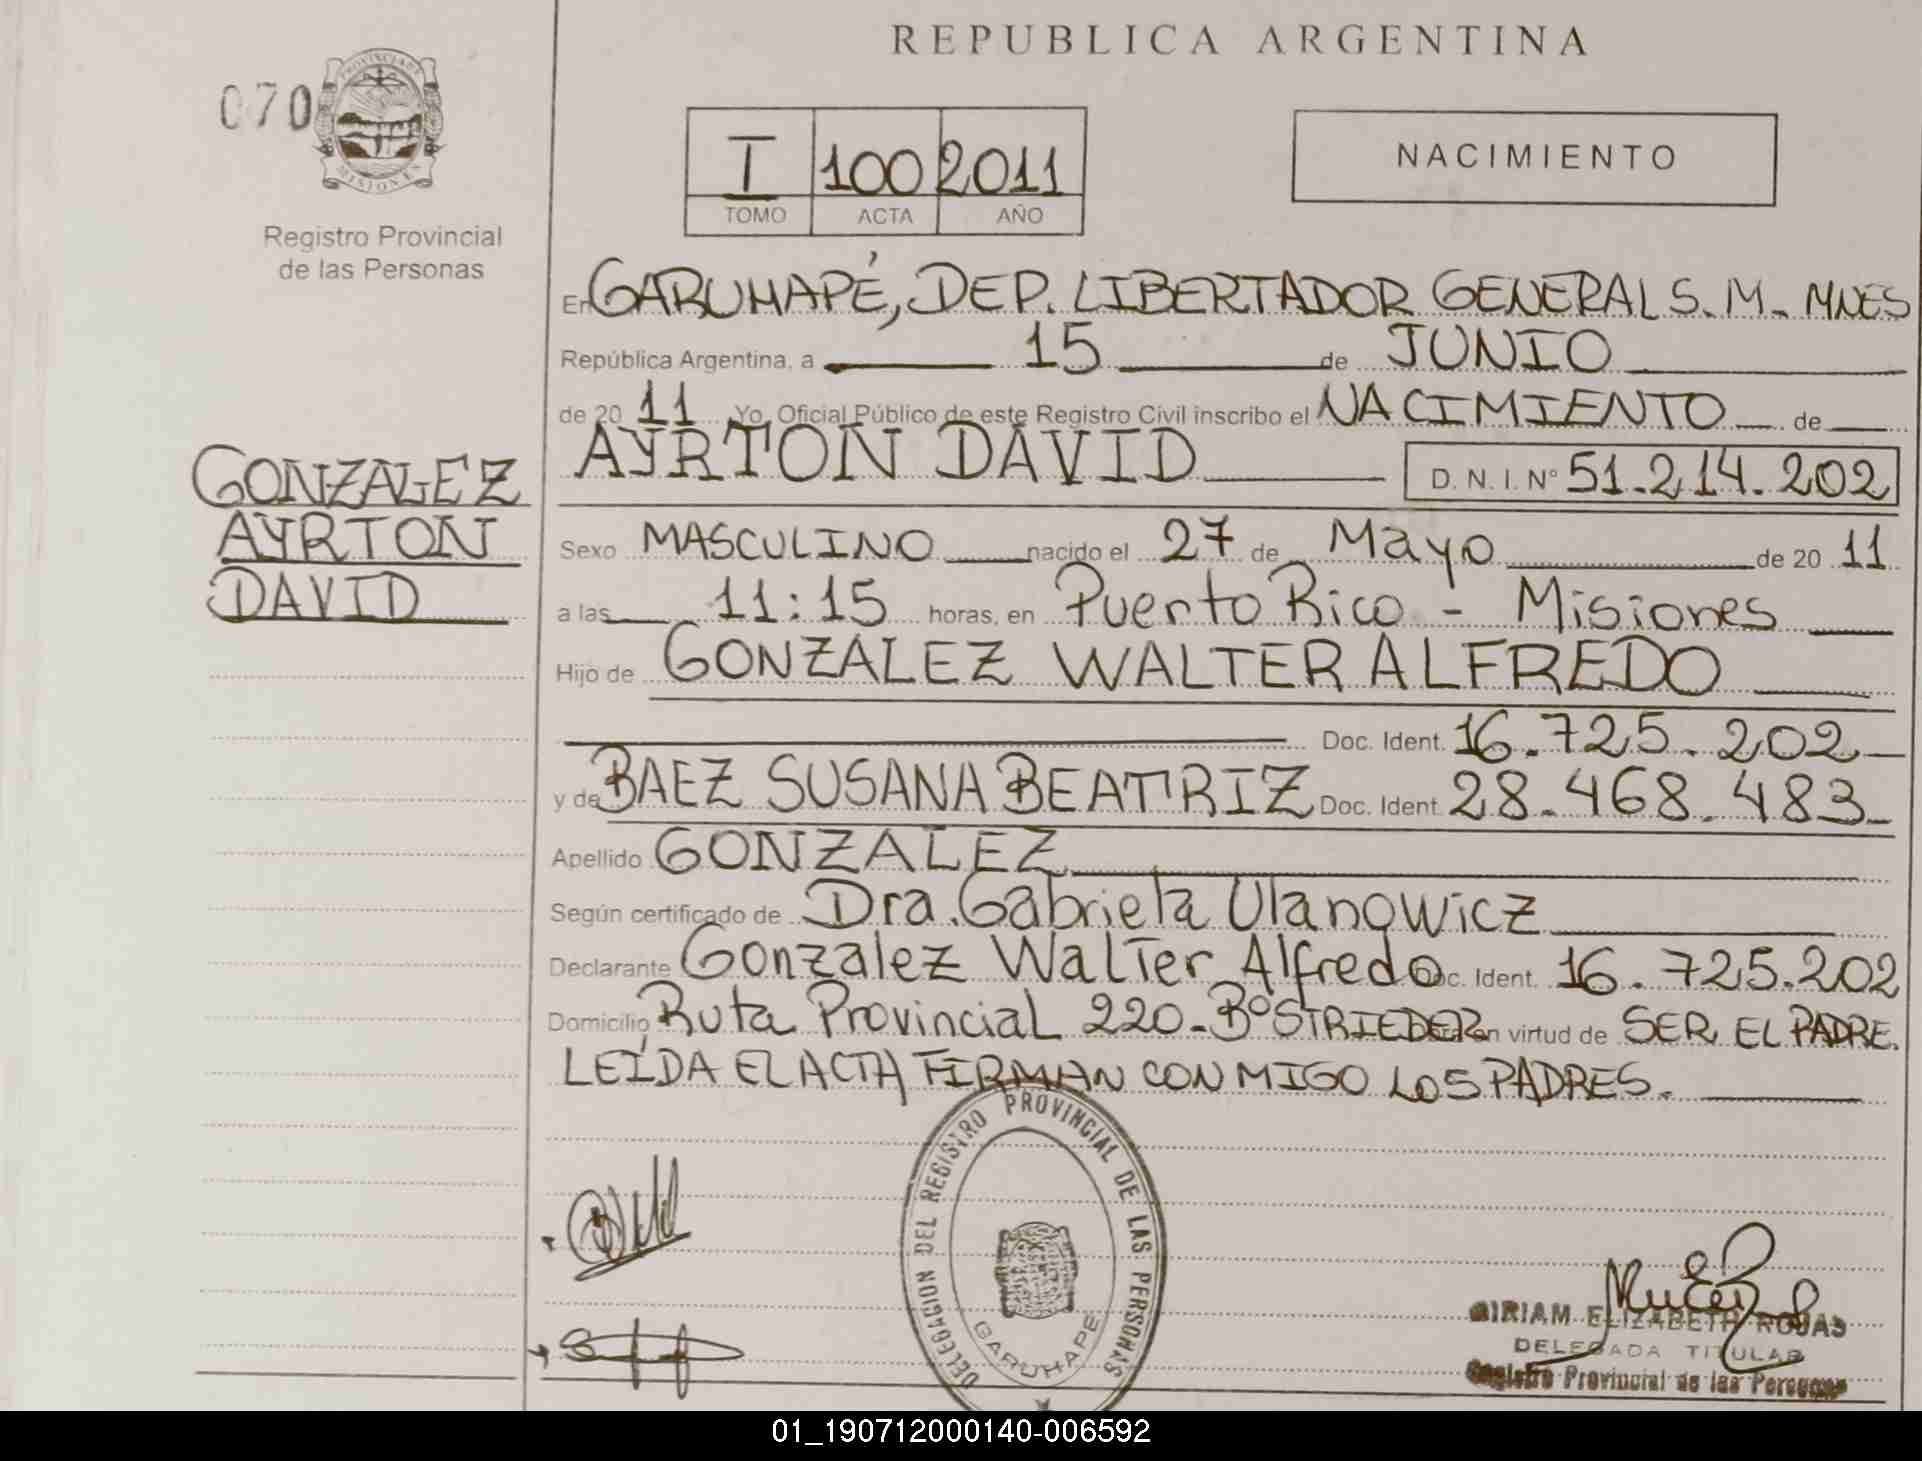 REPUBLICA ARGENTINA
070
PROVINCIA DE
MISIONES
Registro Provincial
de las Personas
I 100 2011
TOMO ACTA AÑO
NACIMIENTO
GONZALEZ
AYRTON
DAVID
En GARUHAPÉ, DEP. LIBERTADOR GENERAL S. M. MNES
República Argentina, a 15 de JUNIO
de 20 11 Yo, Oficial Público de este Registro Civil inscribo el NACIMIENTO de
AYRTON DAVID D. N. I. Nº 51.214.202
Sexo MASCULINO nacido el 27 de Mayo de 20 11
a las 11:15 horas, en Puerto Rico - Misiones
Hijo de GONZALEZ WALTER ALFREDO
Doc. Ident. 16.725.202
y de BAEZ SUSANA BEATRIZ Doc. Ident. 28.468.483
Apellido GONZALEZ
Según certificado de Dra. Gabriela Ulanowicz
Declarante Gonzalez Walter Alfredo Doc. Ident. 16.725.202
Domicilio Ruta Provincial 220-Bº STRIEDER en virtud de SER EL PADRE.
LEÍDA EL ACTA FIRMAN CONMIGO LOS PADRES.
DELEGACION DEL REGISTRO PROVINCIAL DE LAS PERSONAS
GARUHAPE
MIRIAM ELIZABETH ROJAS
DELEGADA TITULAR
Registro Provincial de las Personas
01_190712000140-006592